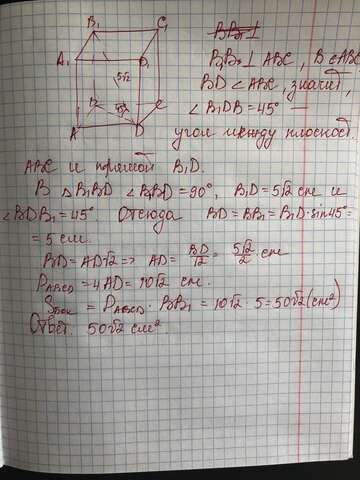 B₁ C₁
A₁ D₁
5√2
B C
45°
A D
BB₁ ⊥
B₁B ⊥ ABC, B ∈ ABC
BD ⊂ ABC, значит,
∠B₁DB = 45° —
угол между плоскост.
ABC и прямой B₁D.
В △B₁BD ∠B₁BD = 90°, B₁D = 5√2 см и
∠BDB₁ = 45° Отсюда BD = BB₁ = B₁D · sin45° =
= 5 см.
BD = AD√2 => AD = BD/√2 = 5√2/2 см
P_ABCD = 4AD = 10√2 см.
S_бок = P_ABCD · BB₁ = 10√2 · 5 = 50√2 (см²)
Ответ 50√2 см².